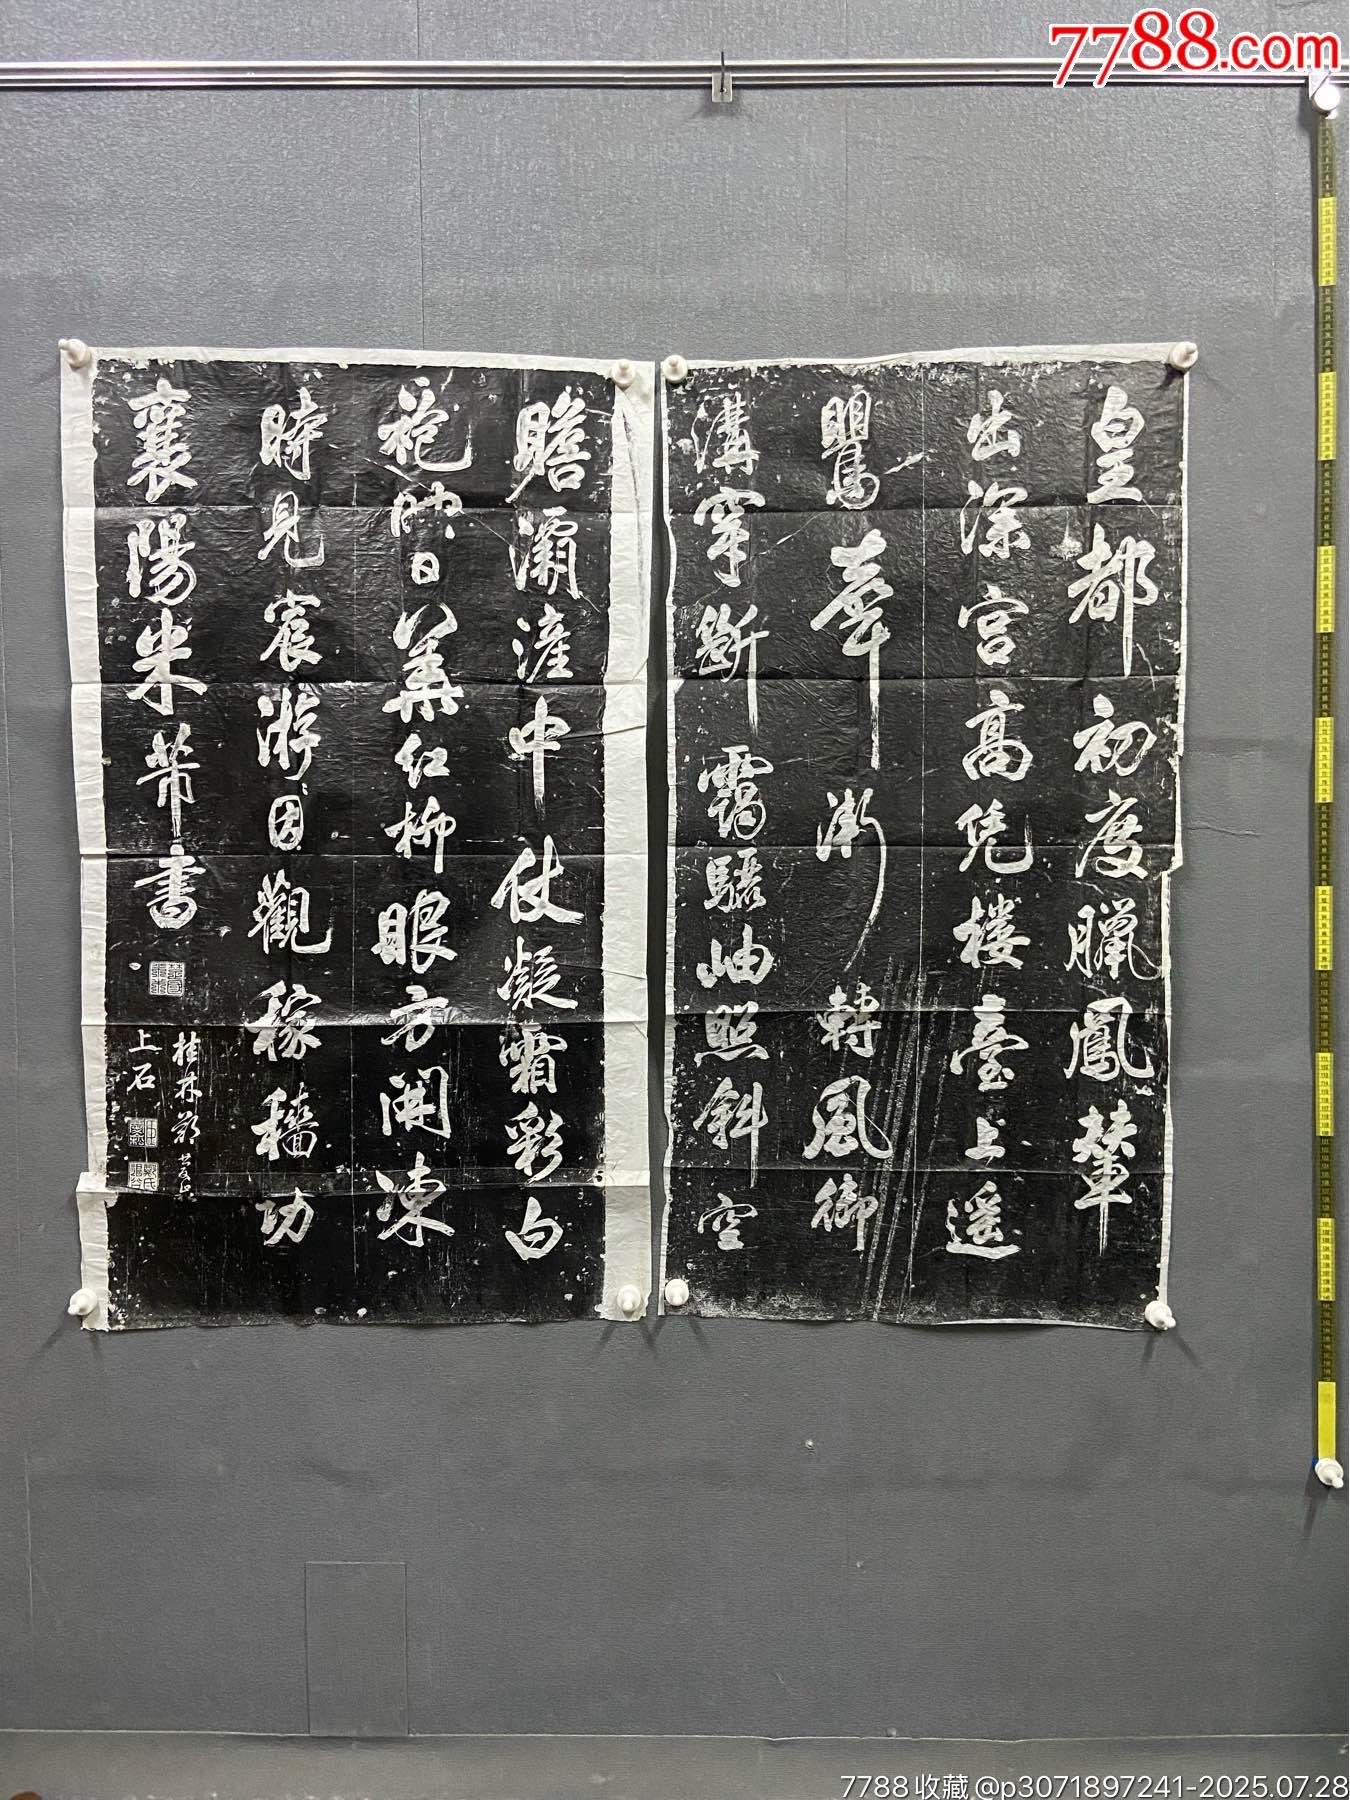 7788.com
皇都初度臘鳳輦
出深宫高凭樓臺上遥
鸎聲漸轉風御
溝穿斷靄驪岫照斜空
瞻灞滻中仗凝霜彩白
袍映日華紅柳眼方開凍
時見宸游因觀稼穡功
襄陽米芾書
桂林鄭
上石
7788收藏@p3071897241-2025.07.28